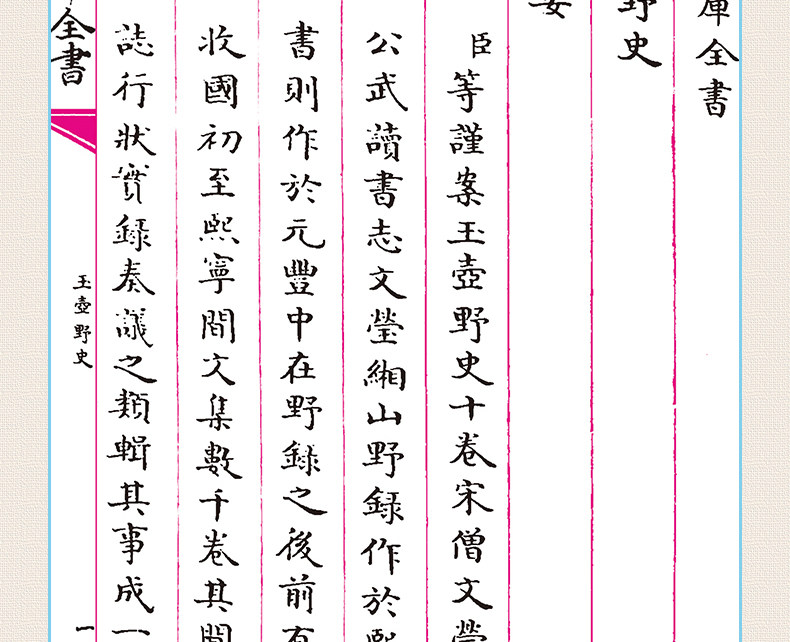 庫全書
野史
臣等謹案玉壺野史十卷宋僧文瑩
公武讀書志文瑩緗山野録作於熙
書則作於元豐中在野録之後前有
收國初至熙寧間文集數千卷其間
誌行狀實録奏議之類輯其事成一
全書
玉壺野史
一